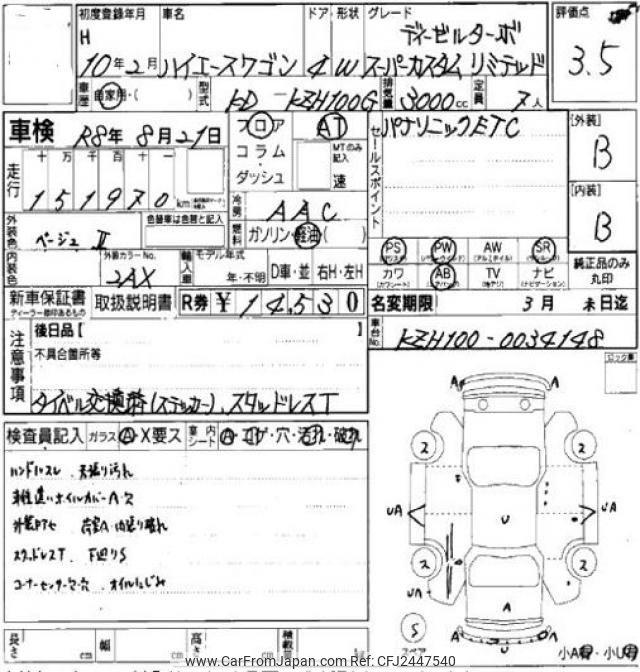 初度登録年月 車名 ドア 形状 グレード 評価点
H ディーゼルターボ
10年2月 ハイエースワゴン 4 W スーパーカスタム リミテッド 3.5
車歴 自家用・( ) 型式 KD-KZH100G 排気量 3000cc 定員 7人
車検 R8年 8月21日 フロア AT セールスポイント パナソニックETC [外装]
コラム MTのみ記入 B
走行 十 万 千 百 十 一 ダッシュ 速
151970km 冷房 AAC [内装]
外装色 ベージュII 色替車は色替と記入 燃料 ガソリン・軽油( ) B
PS PW AW SR
内装色 外装カラーNo. 輸入車 モデル年式 カワ AB TV ナビ 純正品のみ丸印
2AX 年・不明 D車・並 右H・左H
新車保証書 取扱説明書 R券 ¥14,530 名変期限 3月 末日迄
ディーラー捺印あるもの
後日品【 】 車台No. KZH100-0034148
注意事項 不具合箇所等
タイベル交換済(ステッカー)、スタッドレスT
検査員記入 ガラス A・X要ス 室内シート A・コゲ・穴・汚れ・破れ
ハンドルスレ 天張り汚れ
車種違いホイルカバーA・穴
スタッドレスT 下廻りS
コーナーセンサー穴 オイルにじみ
A A
2 2
UA U UA
2 2
UA A A
S スペア A U A
小A・小U
長さ cm 幅 cm 高さ cm 積載量
www.CarFromJapan.com Ref: CFJ2447540